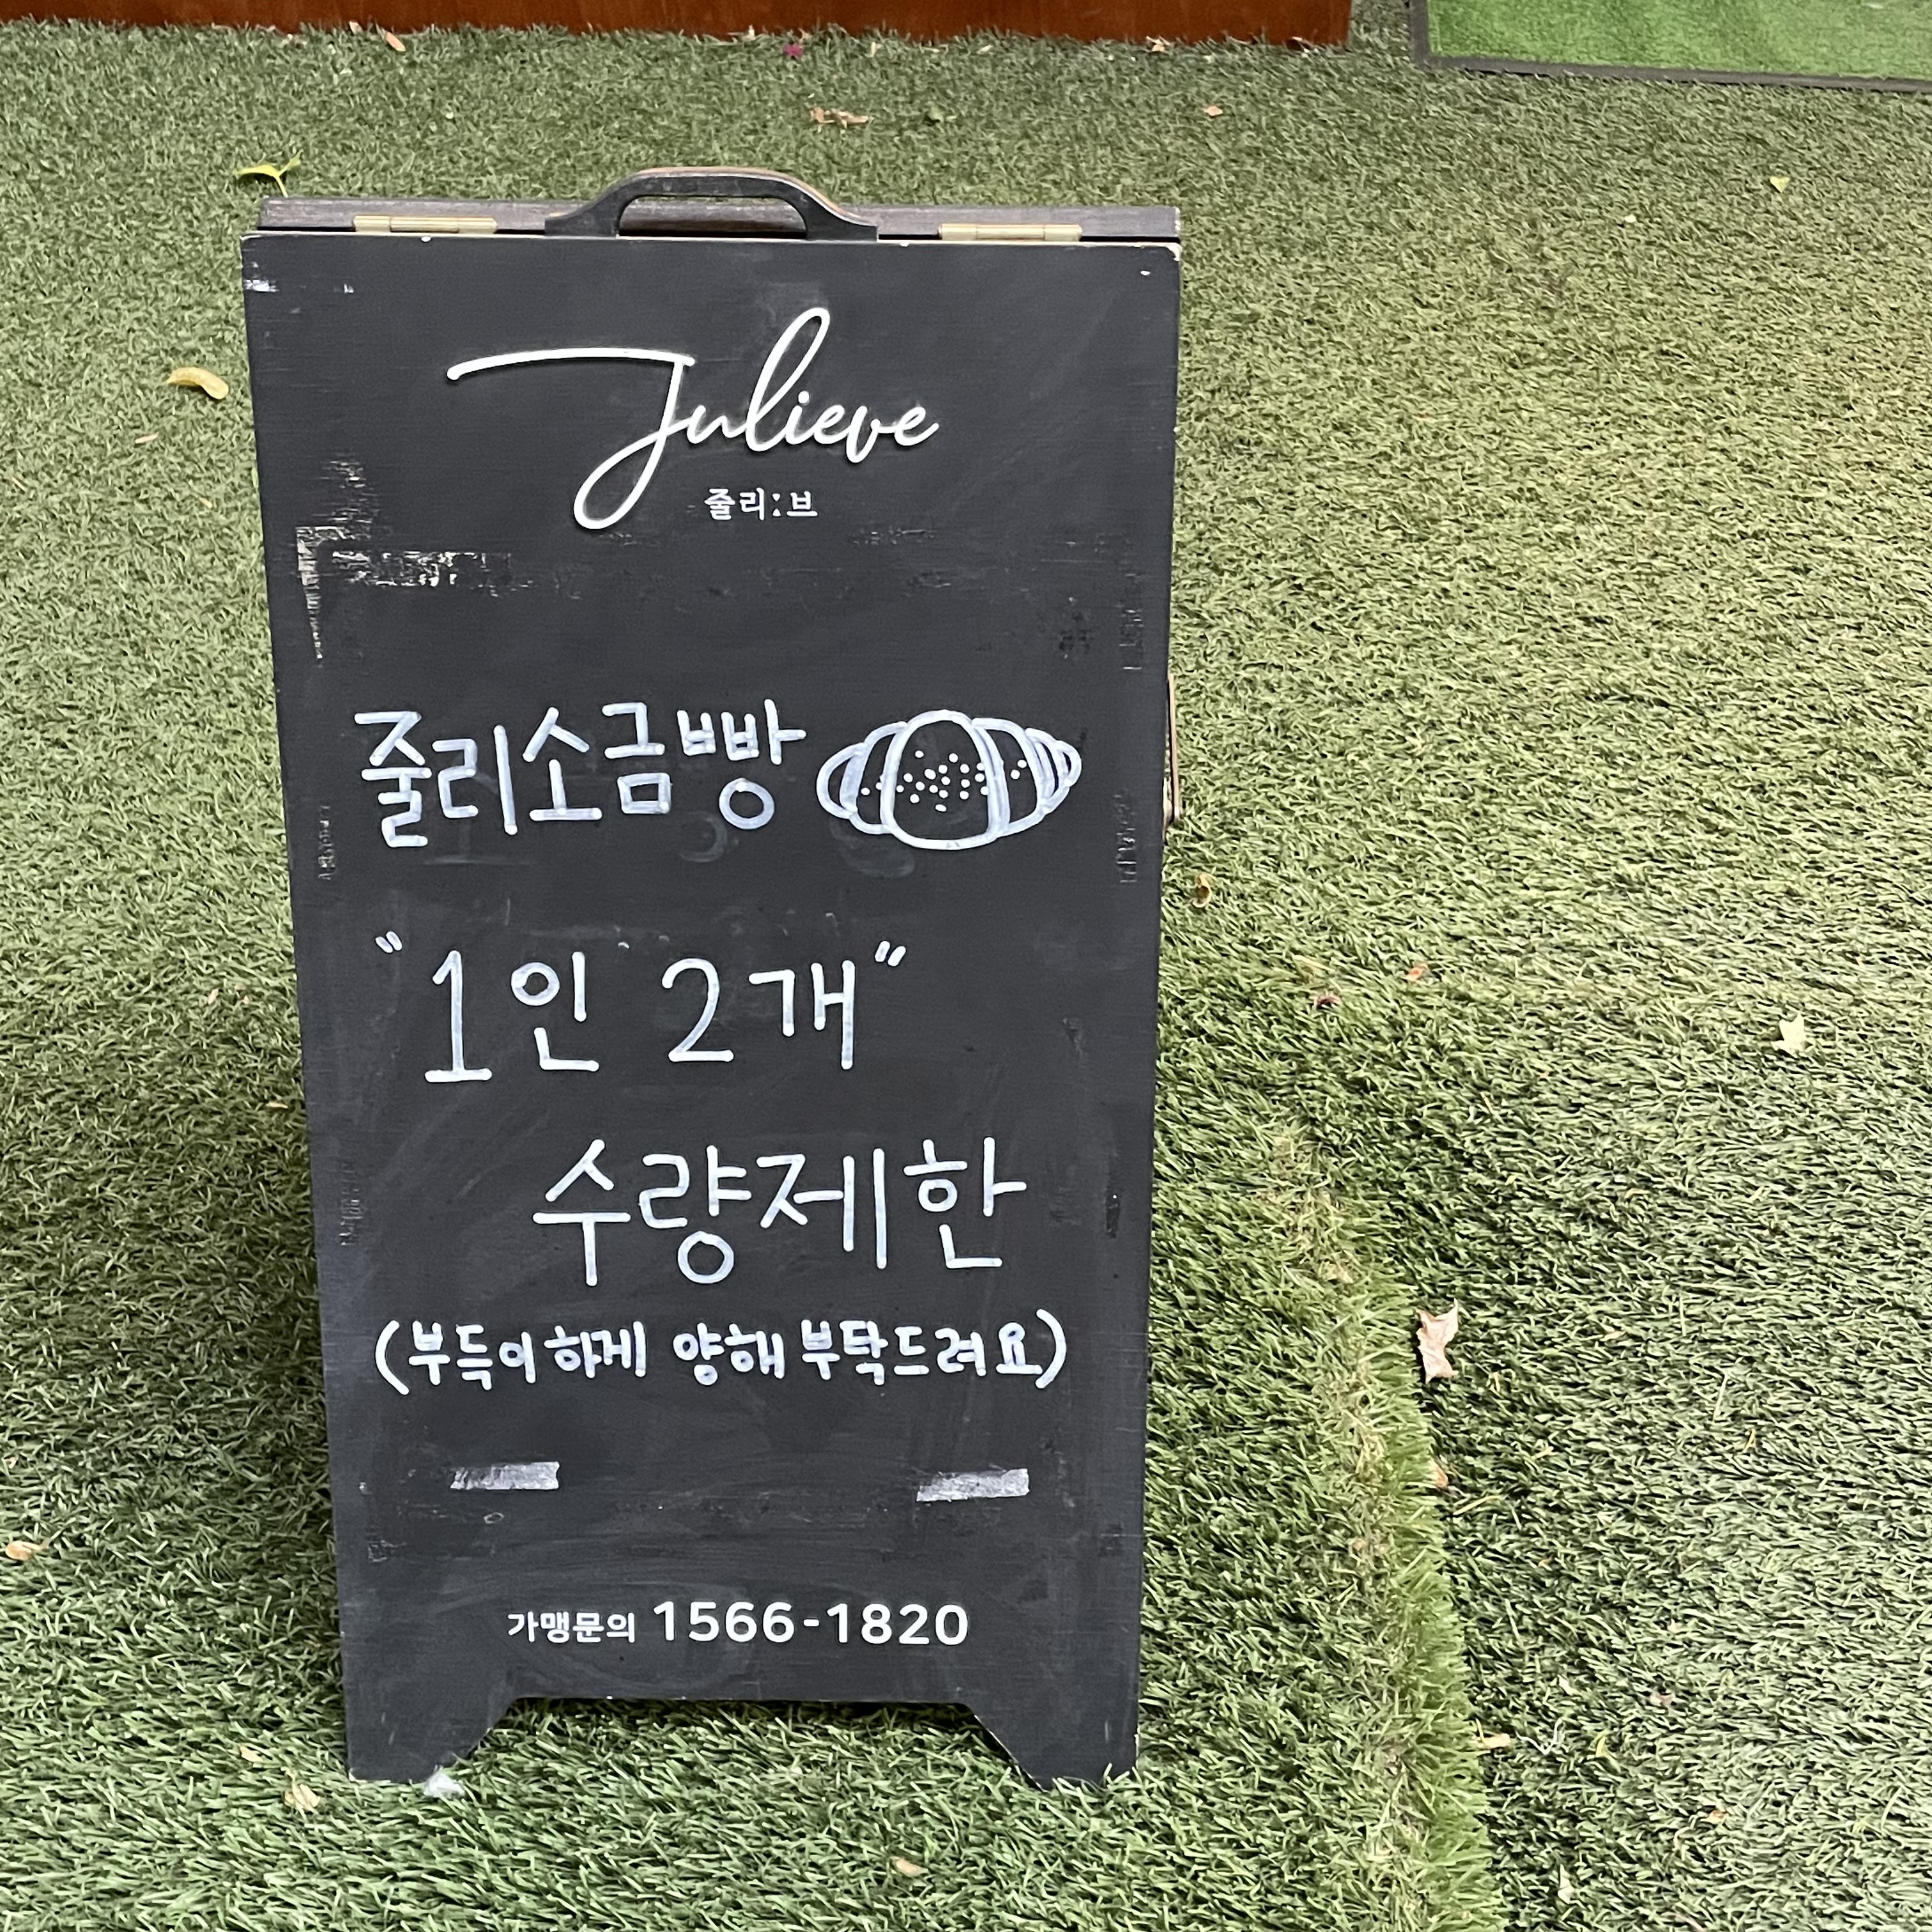 Julieve
줄리:브
줄리소금빵
"1인 2개"
수량제한
(부득이하게 양해부탁드려요)
가맹문의 1566-1820